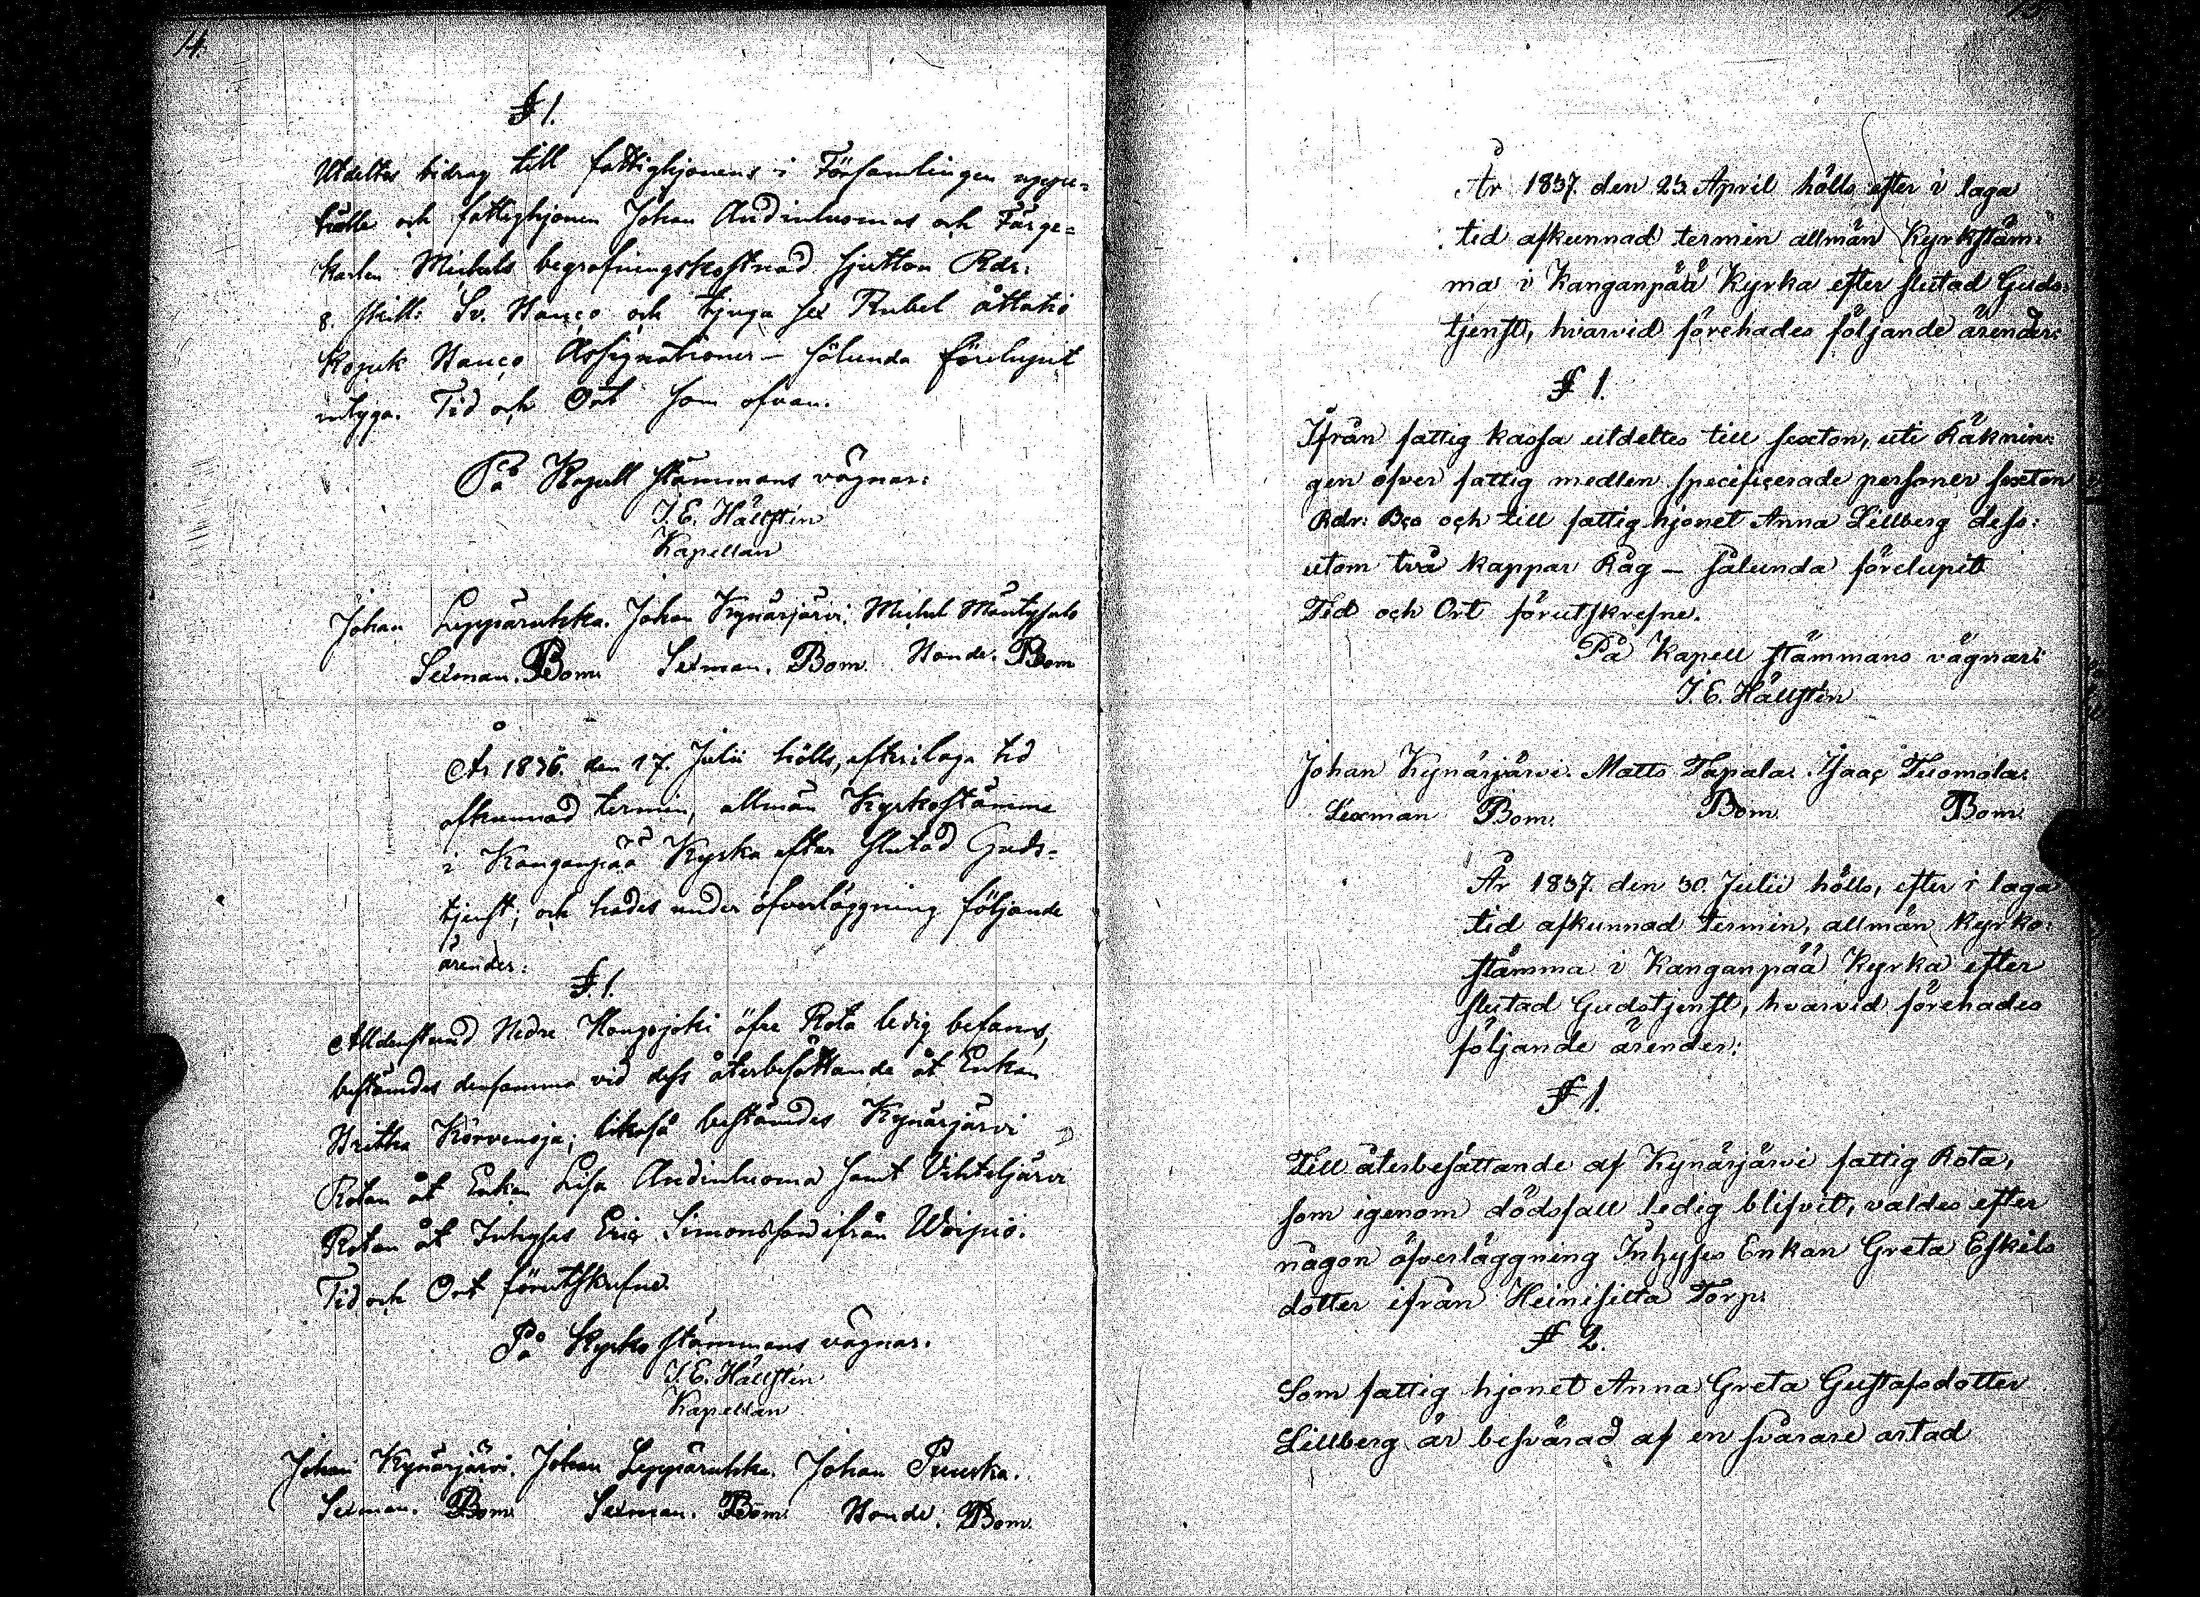 14.
§ 1.
Utdeltes bidrag till fattighjonens i Församlingen uppe-
hälle och fattighjonen Johan Audinluomas och Färge-
karlen Michels begrafningskostnad sjutton Rdr:
8. skill: Sv. Banco och tjuga sex Rubel åttatio
Kopek Banco Assignationer – sålunda förelupit
intyga. Tid och Ort som ofvan.
På Kapell stämmans vägnar:
J. E. Hällstén
Kapellan
Johan Leppäruhka. Johan Kynärjärvi. Michel Mäntysalo
Sexman. Bom. Sexman. Bom. Bonde. Bom
År 1836. den 17. Julii hölls, efter i laga tid
afkunnad termin, allmän Kyrkostämma
i Kanganpää Kyrka efter slutad Guds-
tjenst; och hades under öfverläggning följande
ärender:
§. 1.
Alldenstund Nedre Hongojoki öfre Rota ledig befanns,
bestämdes densamma vid dess återbesättande åt Enkan
Britha Korvenoja; likaså bestämdes Kynärjärvi
Rotan åt Enkan Lisa Audinluoma samt Vihteljärvi
Rotan åt Inhyses Eric Simonsson ifrån Woipio.
Tid och Ort förutskrefne.
På Kyrko stämmans vägnar.
J. E. Hällstén
Kapellan
Johan Kynärjärvi. Johan Leppäruhka. Johan Puuska.
Sexman. Bom. Sexman. Bom. Bonde. Bom.
15
År 1837. den 23. April hölls efter i laga
tid afkunnad termin allmän Kyrkstäm:
ma i Kanganpää Kyrka efter slutad Guds:
tjenst, hvarvid förehades följande ärender:
§ 1.
Ifrån fattig kassa utdeltes till sexton, uti Räknin:
gen öfver fattig medlen specificerade personer sexton
Rdr: Bco och till fattig hjonet Anna Lillberg dess:
utom två kappar Råg – sålunda förelupit
Tid och Ort förutskrefne.
På Kapell stämmans vägnar:
J. E. Hällstén
Johan Kynärjärvi. Matts Tapala. Isaac Tuomola.
Sexman Bom. Bom. Bom.
År 1837. den 30. Julii hölls, efter i laga
tid afkunnad termin, allmän Kyrko:
stämma i Kanganpää Kyrka efter
slutad Gudstjenst, hvarvid förehades
följande ärender:
§ 1.
Till återbesättande af Kynärjärvi fattig Rota,
som igenom dödsfall ledig blifvit, valdes efter
någon öfverläggning Inhyses Enkan Greta Eskils
dotter ifrån Heinisilta Torp.
§ 2.
Som fattig hjonet Anna Greta Gustafsdotter
Lillberg är besvärad af en svårare artad